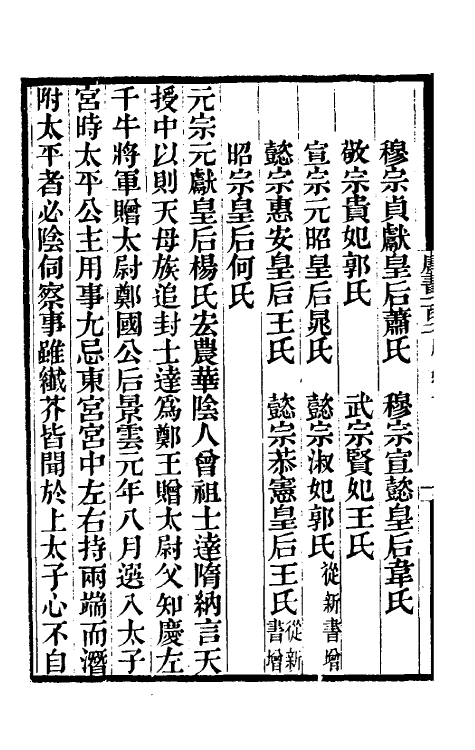 穆宗貞獻皇后蕭氏　穆宗宣懿皇后韋氏
敬宗貴妃郭氏　武宗賢妃王氏
宣宗元昭皇后晁氏　懿宗淑妃郭氏從新書增
懿宗惠安皇后王氏　懿宗恭憲皇后王氏從新書增
昭宗皇后何氏
元宗元獻皇后楊氏宏農華陰人曾祖士達隋納言天
授中以則天母族追封士達爲鄭王贈太尉父知慶左
千牛將軍贈太尉鄭國公后景雲元年八月選入太子
宮時太平公主用事尤忌東宮宮中左右持兩端而潛
附太平者必陰伺察事雖纖芥皆聞於上太子心不自